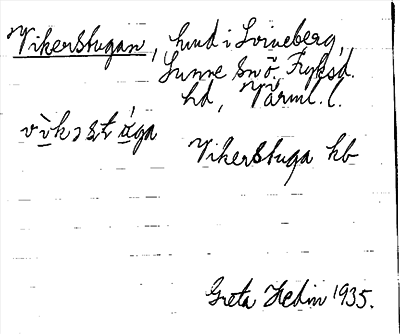 Vikerstugan, hmd i Svineberg,
Sunne sn ö. Fryksd.
hd, Värml. l.
vìkɔstúga
Vikerstuga hb
Greta Hedin 1935.